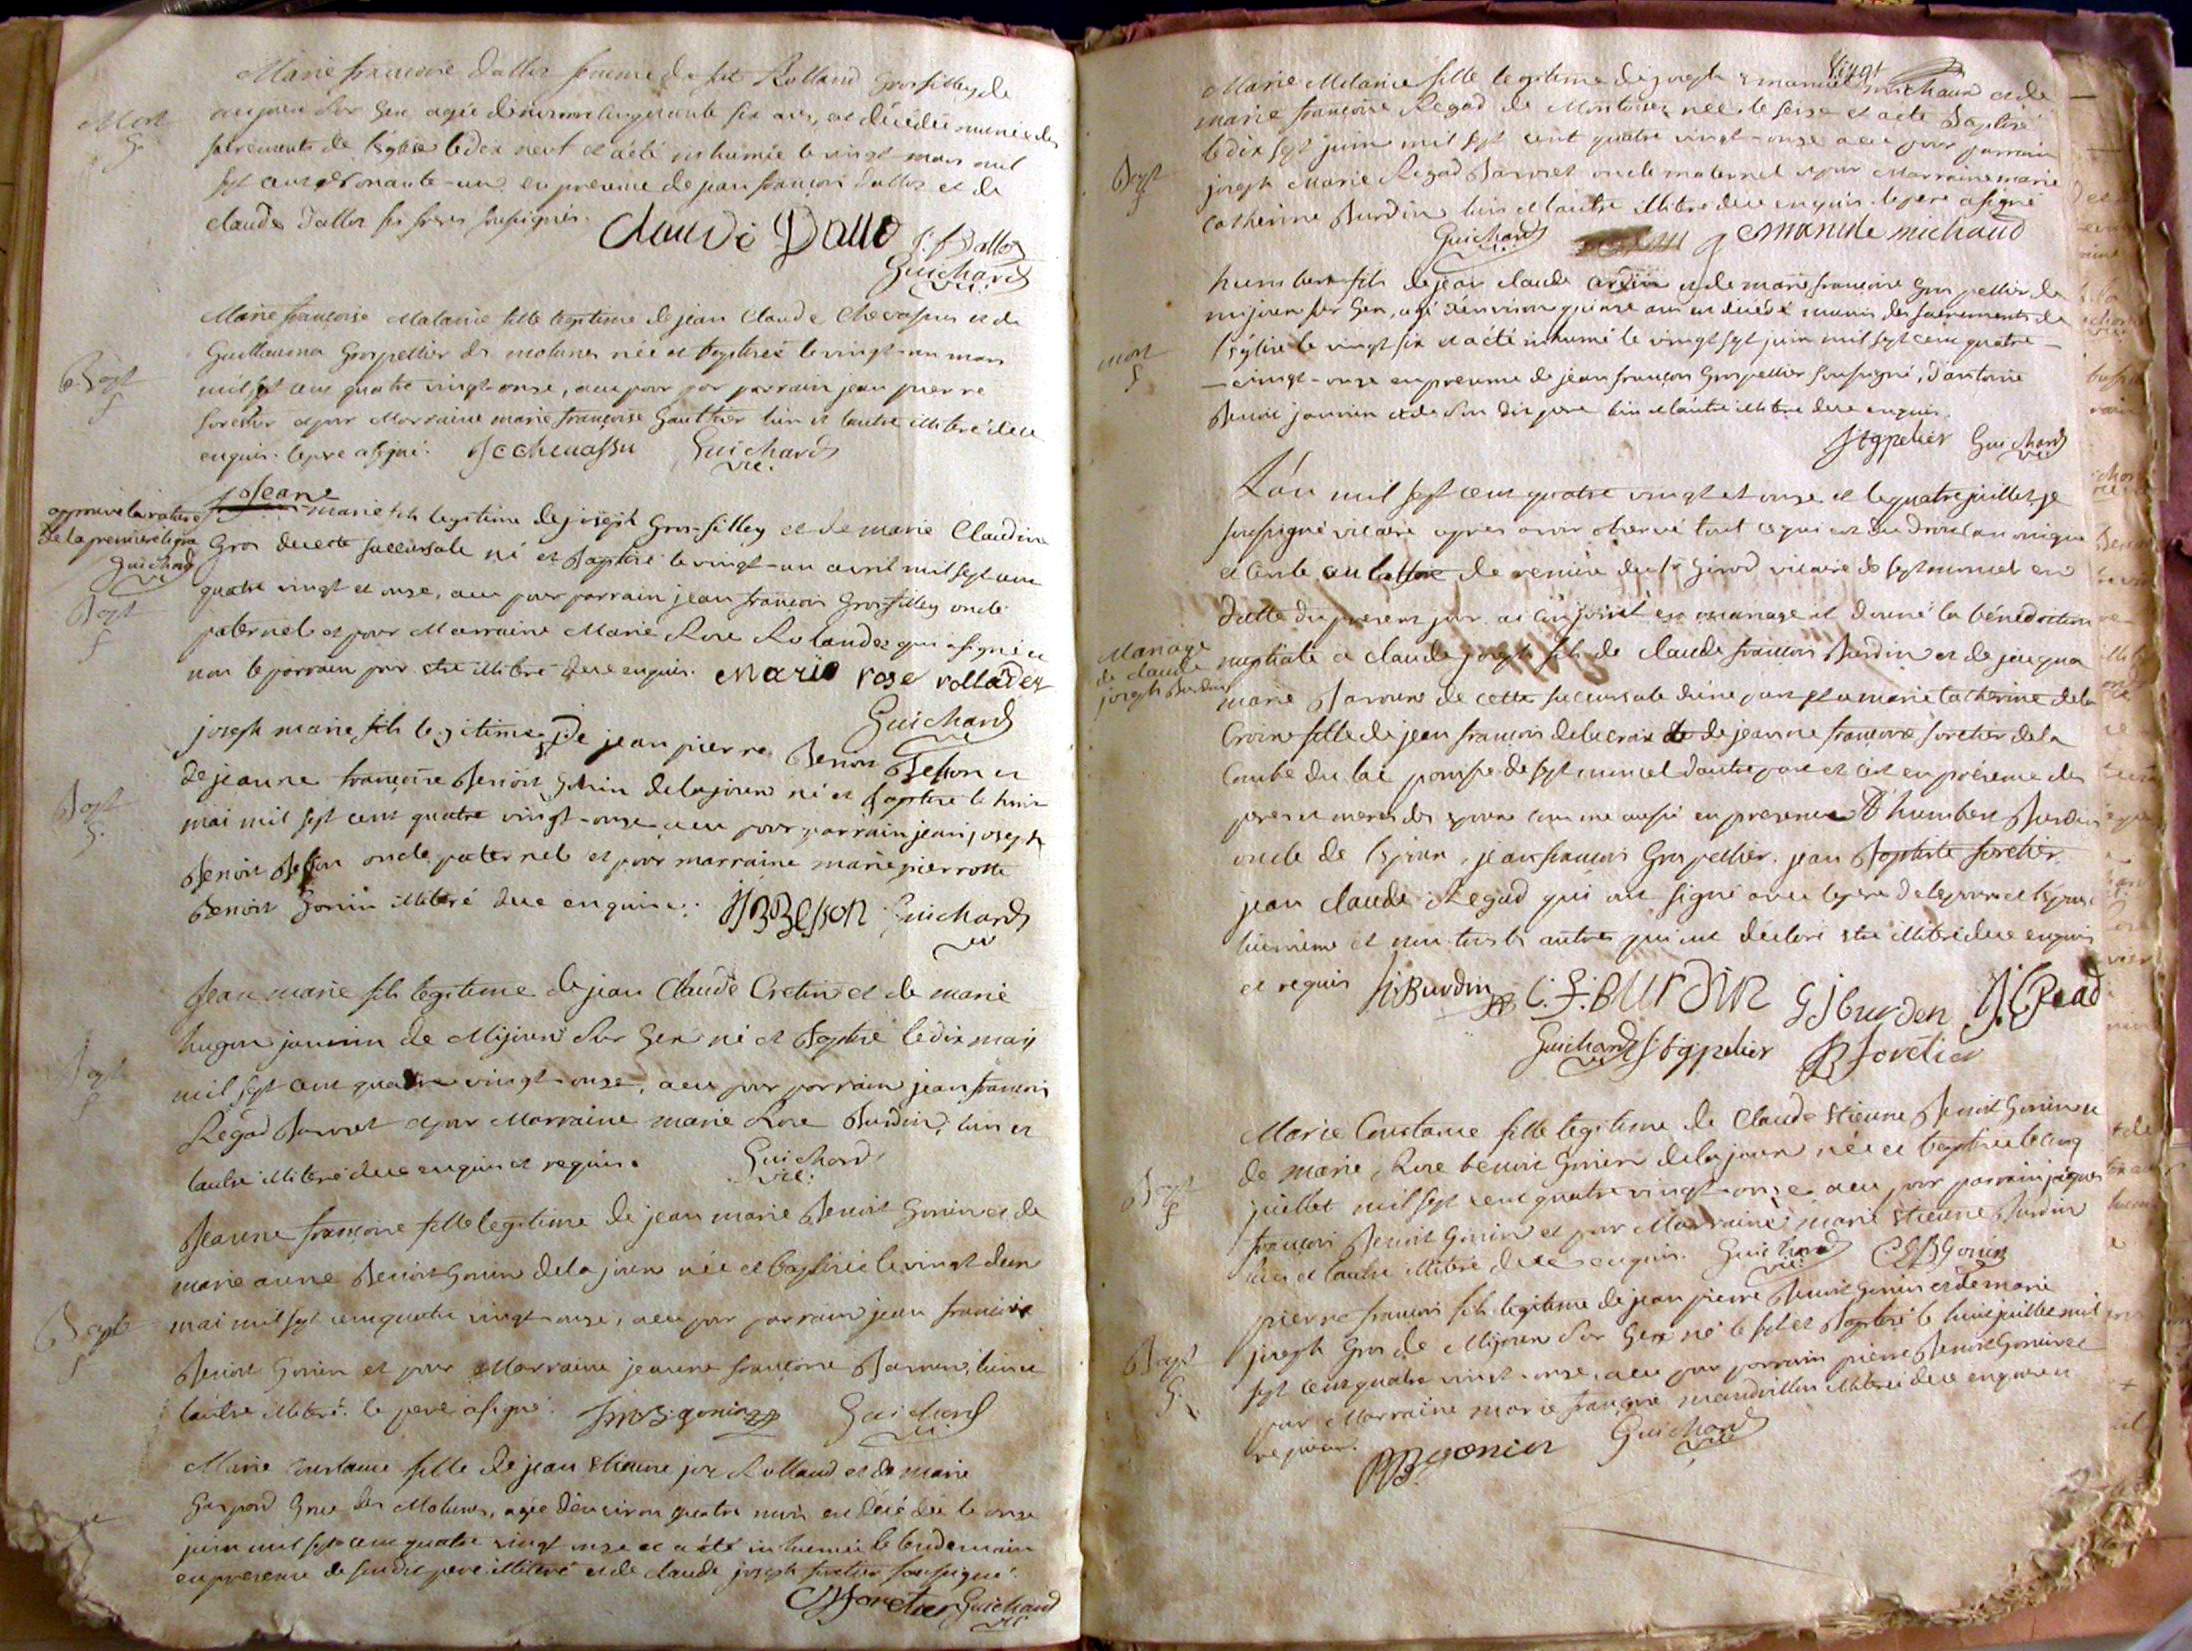 Marie françoise dalloz femme de feu Rolland Grosfilley de
mijoux sur Gex agée d'environ cinquante six ans, est décédée munie des
Mort
sacrements de l'église le dix neuf et a été inhumée le vingt mars mil
sept cent nonante-un en presence de jean françois dalloz et de
claude dalloz ses freres soussignés.
Claude Dallo J. f Dalloz
Guichard
vic:
Marie françoise Melanie fille legitime de jean Claude Chevassus et de
Guillauma Grospellier des molunes née et baptisée le vingt-un mars
Bapt
mil sept cent quatre vingt-onze, a eu pour parrain jean pierre
foretier et pour Marraine marie françoise Gauthier l'un et l'autre illiteré de ce
enquis. le pere a signé. JCChevassu Guichard
vic.
Jean
approuvé la rature
de la premiere ligne
Guichard
vic
marie fils legitime de joseph Gros-filley et de marie Claudine
Gros de cette succursale né et Baptisé le vingt-un avril mil sept cent
Bapt
quatre vingt et onze, a eu pour parrain jean françois Grosfilley oncle
paternel et pour Marraine Marie Rose Rolandez qui a signé et
non le parrain pour etre illiteré de ce enquis. Marie rose rolládez
Guichard
vic
joseph marie fils legitime de jean pierre Benoit Besson et
de jeanne françoise Benoit Gonin de lajoux né et baptisé le huit
Bapt
mai mil sept cent quatre vingt-onze a eu pour parrain jean joseph
Benoit Besson oncle paternel et pour marraine marie pierrotte
Benoit Gonin illiteré de ce enquise. JJBBesson Guichard
vic
Jean marie fils legitime de jean Claude Cretin et de marie
hugon jannin de Mijoux Sur Gex né et Baptisé le dix mai
Bapt
mil sept cent quatre vingt-onze, a eu pour parrain jean françois
Regad Barvret et pour Marraine marie Rose Burdin, l'un et
l'autre illiteré de ce enquis et requis. Guichard
vic.
Jeanne françoise fille legitime de jean marie Benoit Gonin et de
marie anne Benoit Gonin de lajoux née et baptisée le vingt d'un
Bapt
mai mil sept cent quatre vingt-onze, a eu pour parrain jean françois
Benoit Gonin et pour Marraine jeanne françoise l'un et
l'autre illiteré. le pere a signé. Guichard
vic
Marie Constance fille de jean etienne joz Rolland et de marie
Gaspard Grue des Molunes, agée d'environ quatre mois est décédée le onze
juin mil sept cent quatre vingt onze et a été inhumée le lendemain
en presence de sondit pere illiteré et de claude joseph foretier soussigné.
CJforetier Guichard
vic
Vingt
Marie Melanie fille legitime de joseph emanuel michaud et de
marie françoise Regad de née le seize et a été Baptisé
le dix sept juin mil sept cent quatre vingt-onze a eu pour parrain
Bapt
joseph Marie Regad Barvret oncle maternel et pour Marraine marie
catherine Burdin l'un et l'autre illiteré de ce enquis. le pere a signé
Guichard
vic
J emanule michaud
humbert fils de jean claude et de marie françoise Gros pellier de
mijoux sur Gex, agé d'environ quinze ans est décédé munis des sacrements de
mort
l'église le vingt six et a été inhumé le vingt sept juin mil sept cent quatre
vingt-onze en presence de jean françois Grospellier soussigné, d'antoine
Benoit jannin et de son dit pere l'un et l'autre illiteré de ce enquis.
jfgpelier Guichard
vic
L'an mil sept cent quatre vingt et onze et le quatre juillet je
soussigné vicaire apres avoir observé tout ce qui est du droit canonique
et civile au lettre de remise du Sr Girod vicaire de septmoncel en
datte du present jour. ai conjoint en mariage et donné la bénédiction
Mariage
de claude
joseph Burdin
nuptiale a claude joseph fils de claude françois Burdin et de jaqua
marie de cette succursale d'une part et a marie catherine dela
Croix fille de jean françois delacroix de jeanne françoise foretier de la
Combe du lac paroisse de septmoncel d'autre part et c'est en présence des
peres et meres des epoux comme aussi en presence D'humbert Burdin
oncle de l'epoux, jean françois Grospellier, jean Baptiste foretier
jean claude Regad qui ont signé avec le pere de l'epoux et l'epoux
luimeme et non tous les autres qui ont déclaré etre illiteré de ce enquis
et requis h.Burdin C. F. BUrDin GJburden
Guichard
vic
jfgpelier JBforétier
Marie Constance fille legitime de Claude etienne Benoit Gonin et
de marie Rose benoit Gonin de lajoux née et baptisée le cinq
Bapt
juillet mil sept cent quatre vingt-onze a eu pour parrain jaques
françois Benoit Gonin et pour Marraine marie etienne Burdin
l'un et l'autre illiteré de ce enquis. Guichard
vic.
CEBGonin
pierre françois fils legitime de jean pierre Benoit Gonin et de marie
joseph Gros de Mijoux sur Gex né le sept et Baptisé le huit juillet mil
Bapt
sept cent quatre vingt-onze, a eu pour parrain pierre Benoit Gonin et
pour Marraine marie françoise mandrillon illiteré de ce enquise et
requise.
gonin Guichard
vic